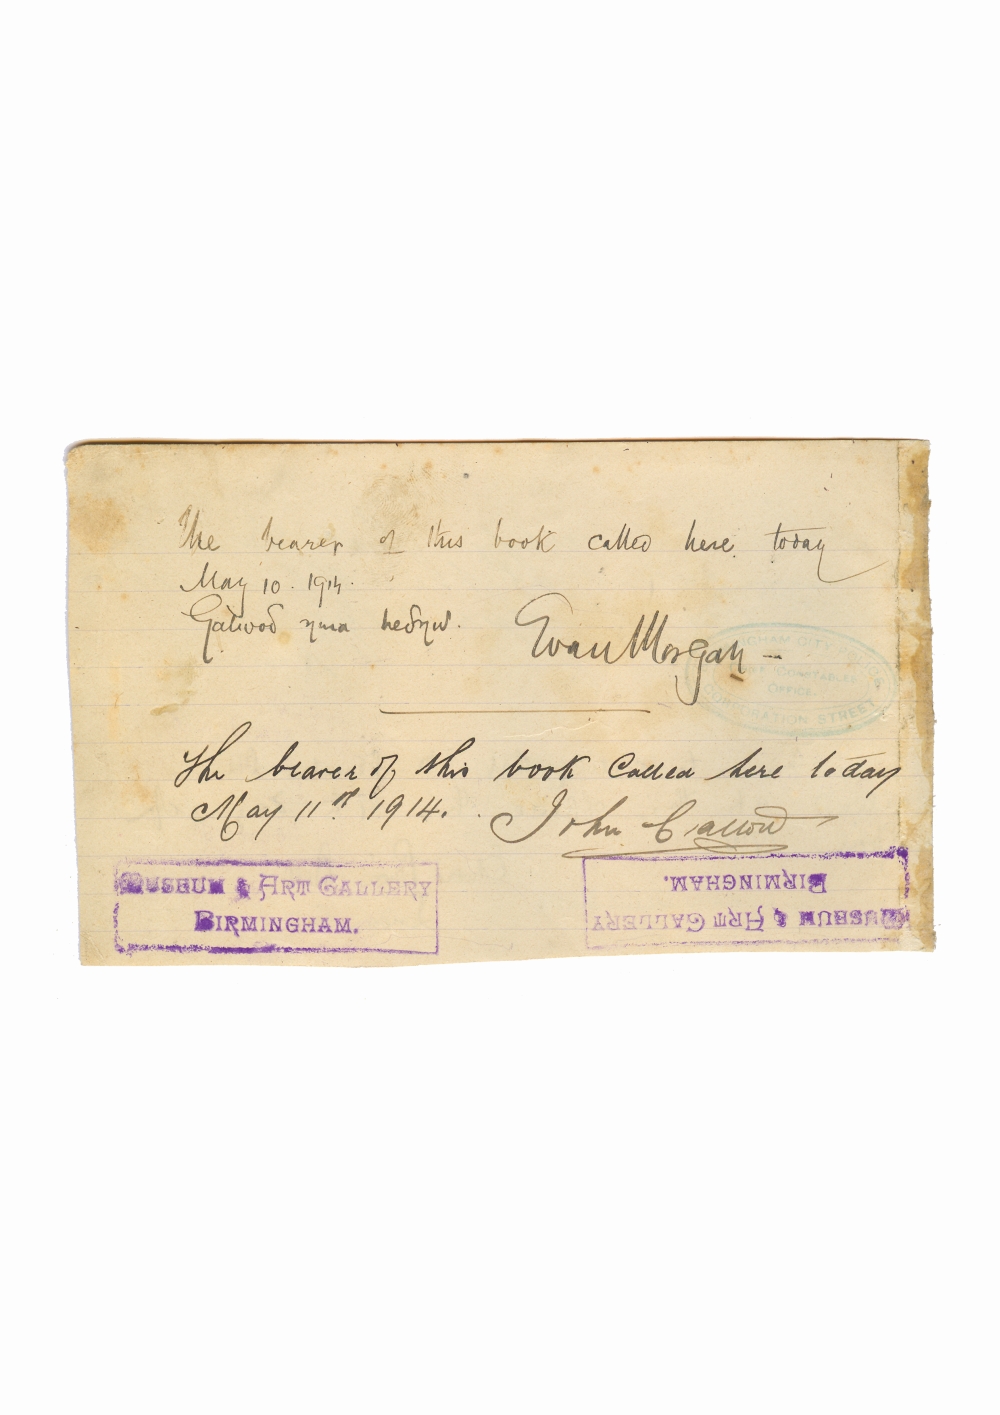 The bearer of this book called here today
May 10. 1914.
Galwodd yma heddyw.
Evan Morgan –
BIRMINGHAM CITY POLICE
CHIEF CONSTABLES
OFFICE
CORPORATION STREET
The bearer of this book Called here today
May 11th 1914.
John
MUSEUM & ART GALLERY
BIRMINGHAM.
MUSEUM & ART GALLERY
BIRMINGHAM.